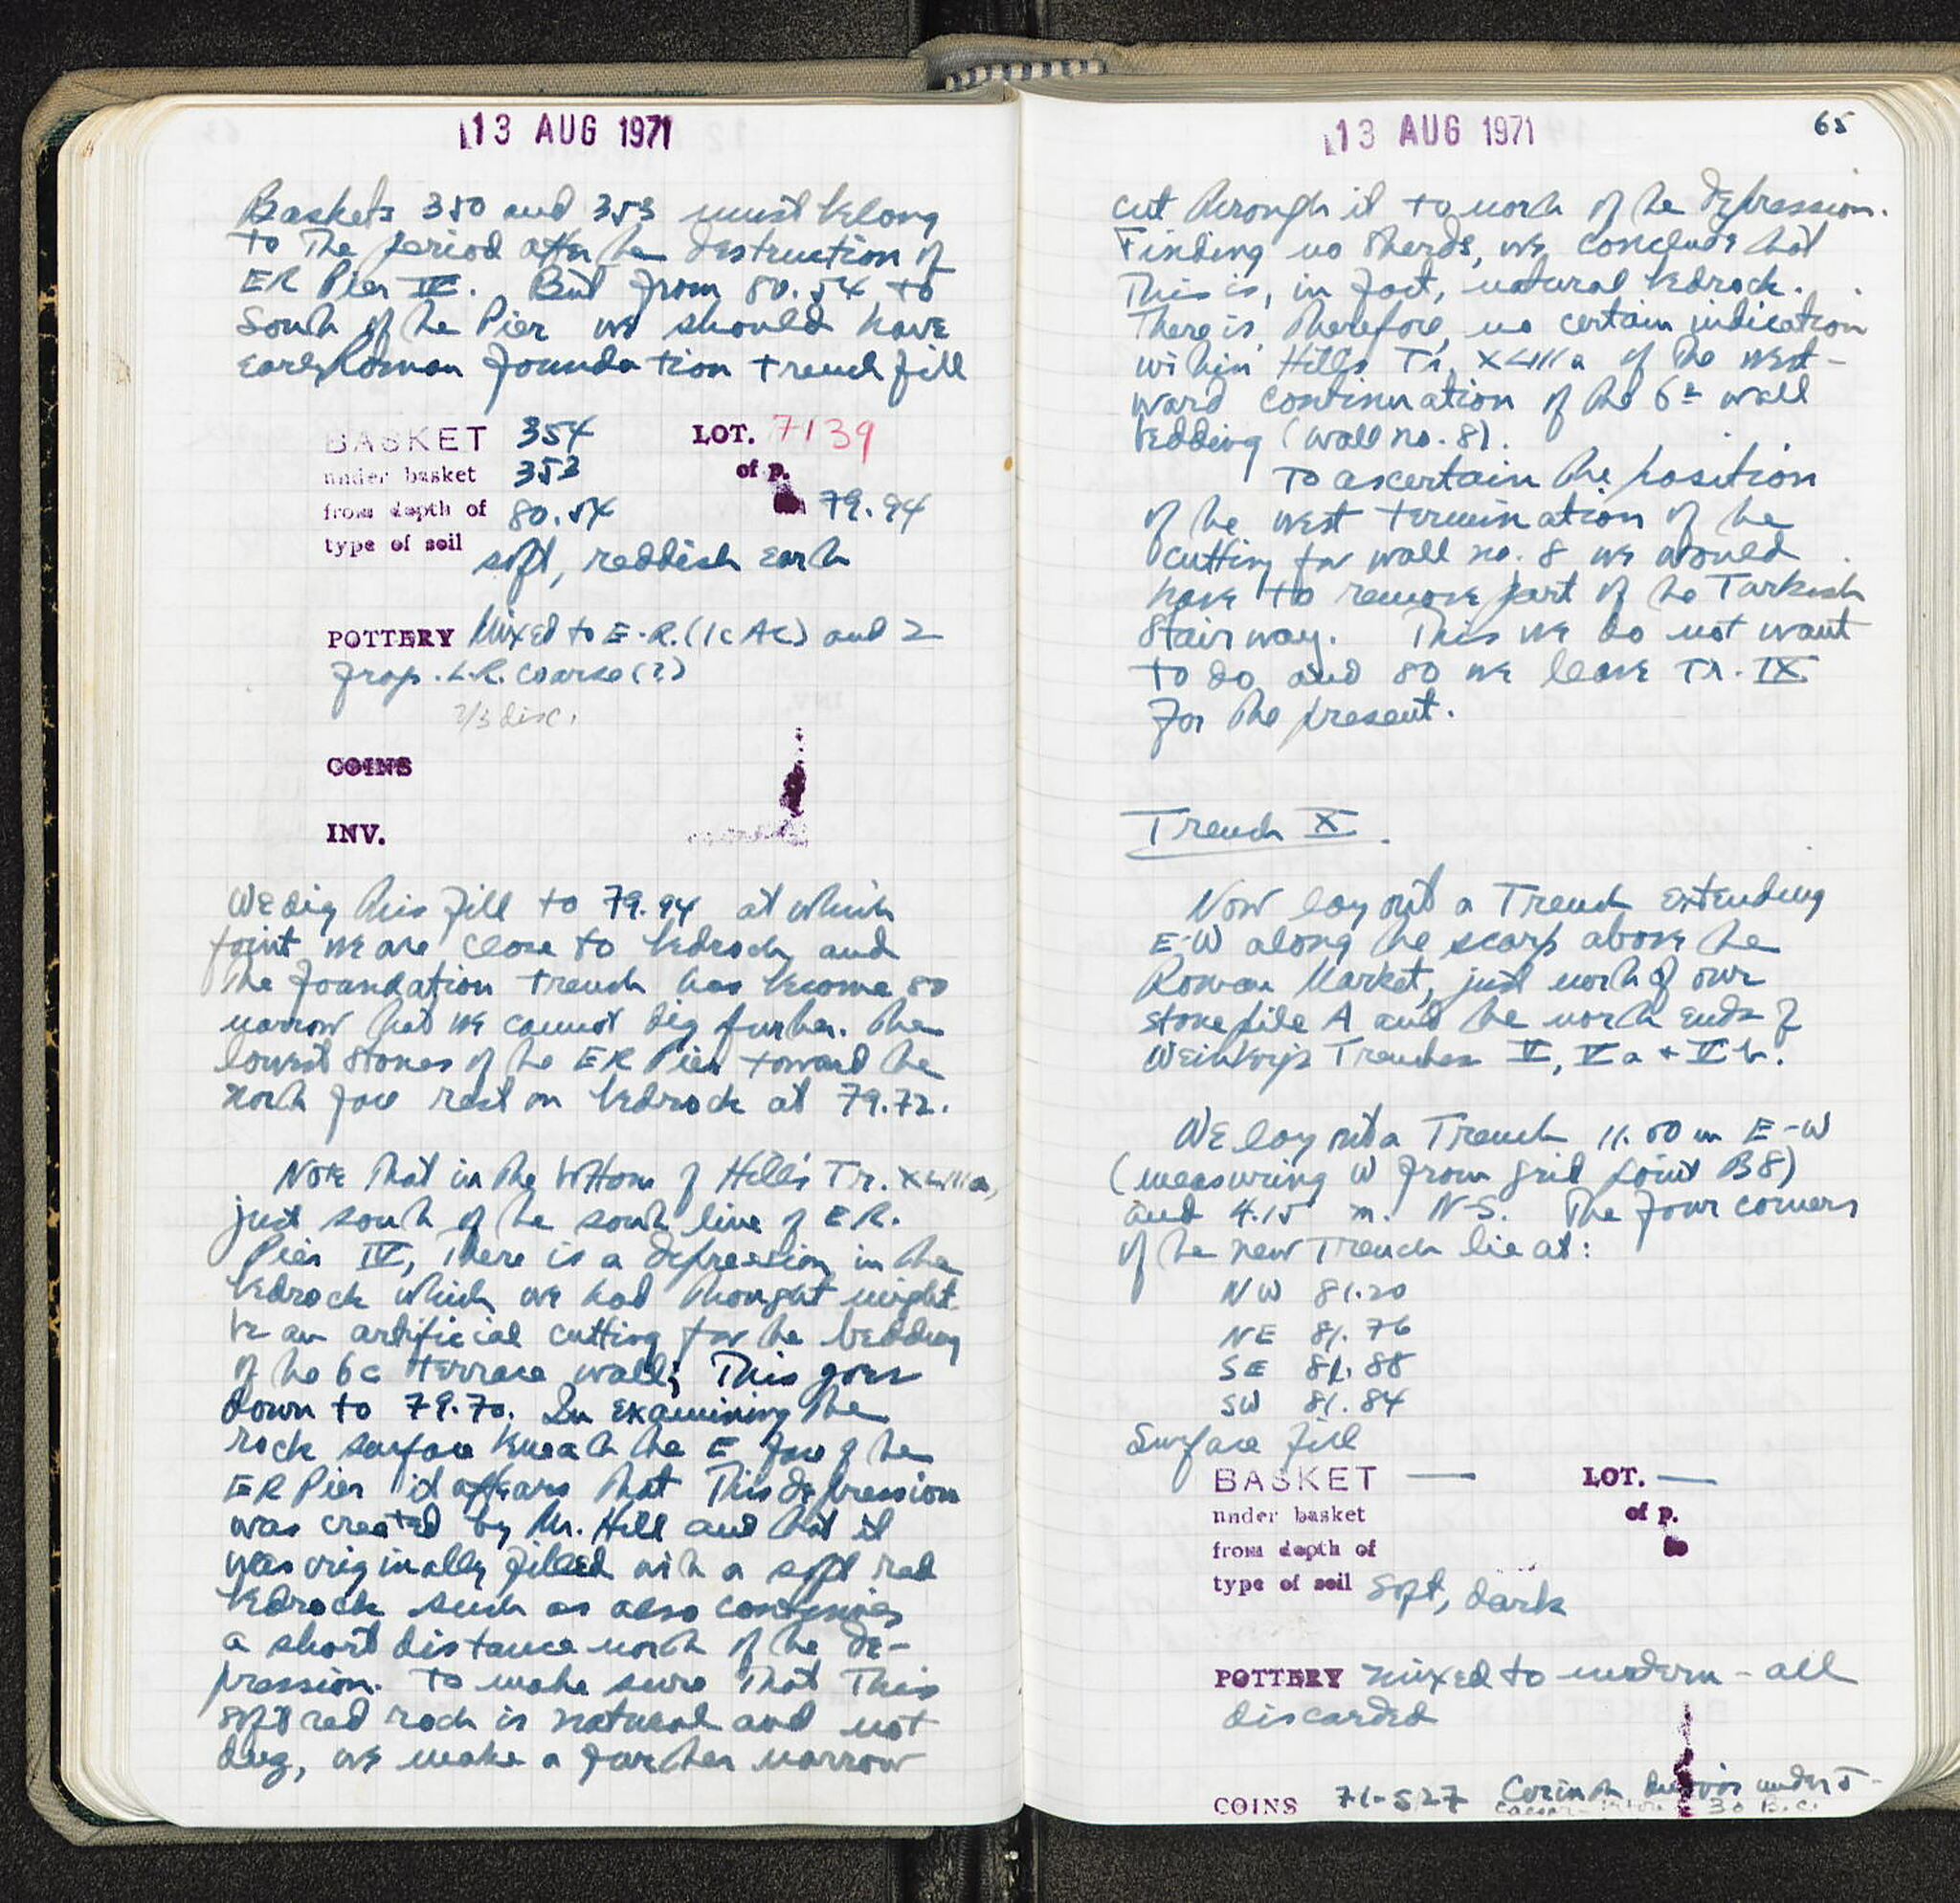 13 AUG 1971
Baskets 350 and 353 must belong
to the period after the destruction of
ER Pier IV. But from 80.54 to
South of the Pier we should have
early Roman foundation trench fill
BASKET 354 LOT. 7139
under basket 353 of p.
from depth of 80.54 79.94
type of soil soft, reddish earth
POTTERY Mixed to E.R. (1c AC) and 2
frag. L.R. coarse (?)
2/3 disc.
COINS
INV.
We dig this fill to 79.94 at which
point we are close to bedrock and
the foundation trench has become so
narrow that we cannot dig further. The
lowest stones of the ER Pier toward the
north face rest on bedrock at 79.72.
Note that in the bottom of Hill's Tr. XLIIIa,
just south of the south line of ER.
Pier IV, there is a depression in the
bedrock which we had thought might
be an artificial cutting for the bedding
of the 6c terrace wall; This goes
down to 79.70. In examining the
rock surface beneath the E face of the
ER Pier it appears that this depression
was created by Mr. Hill and that it
was originally filled with a soft red
bedrock such as also continues
a short distance north of the de-
pression. To make sure that this
soft red rock is natural and not
dug, we make a further narrow
13 AUG 1971 65
cut through it to north of the depression.
Finding no sherds, we conclude that
this is, in fact, natural bedrock.
There is, therefore, no certain indication
within Hill's Tr. XLIIIa of the west-
ward continuation of the 6c wall
bedding (wall no. 8).
To ascertain the position
of the west termination of the
cutting for wall no. 8 we would
have to remove part of the Turkish
stairway. This we do not want
to do and so we leave Tr. IX
for the present.
Trench X.
Now lay out a Trench extending
E-W along the scarp above the
Roman Market, just north of our
stone pile A and the north ends of
Weinberg's Trenches V, Va + Vb.
We lay out a Trench 11.00 m E-W
(measuring W from grid point B8)
and 4.15 m. N-S. The four corners
of the new Trench lie at:
NW 81.20
NE 81.76
SE 81.88
SW 81.84
Surface fill
BASKET — LOT. —
under basket of p.
from depth of
type of soil Soft, dark
POTTERY mixed to modern - all
discarded
COINS 71-527 Corinth duovir under J-
30 B.C.